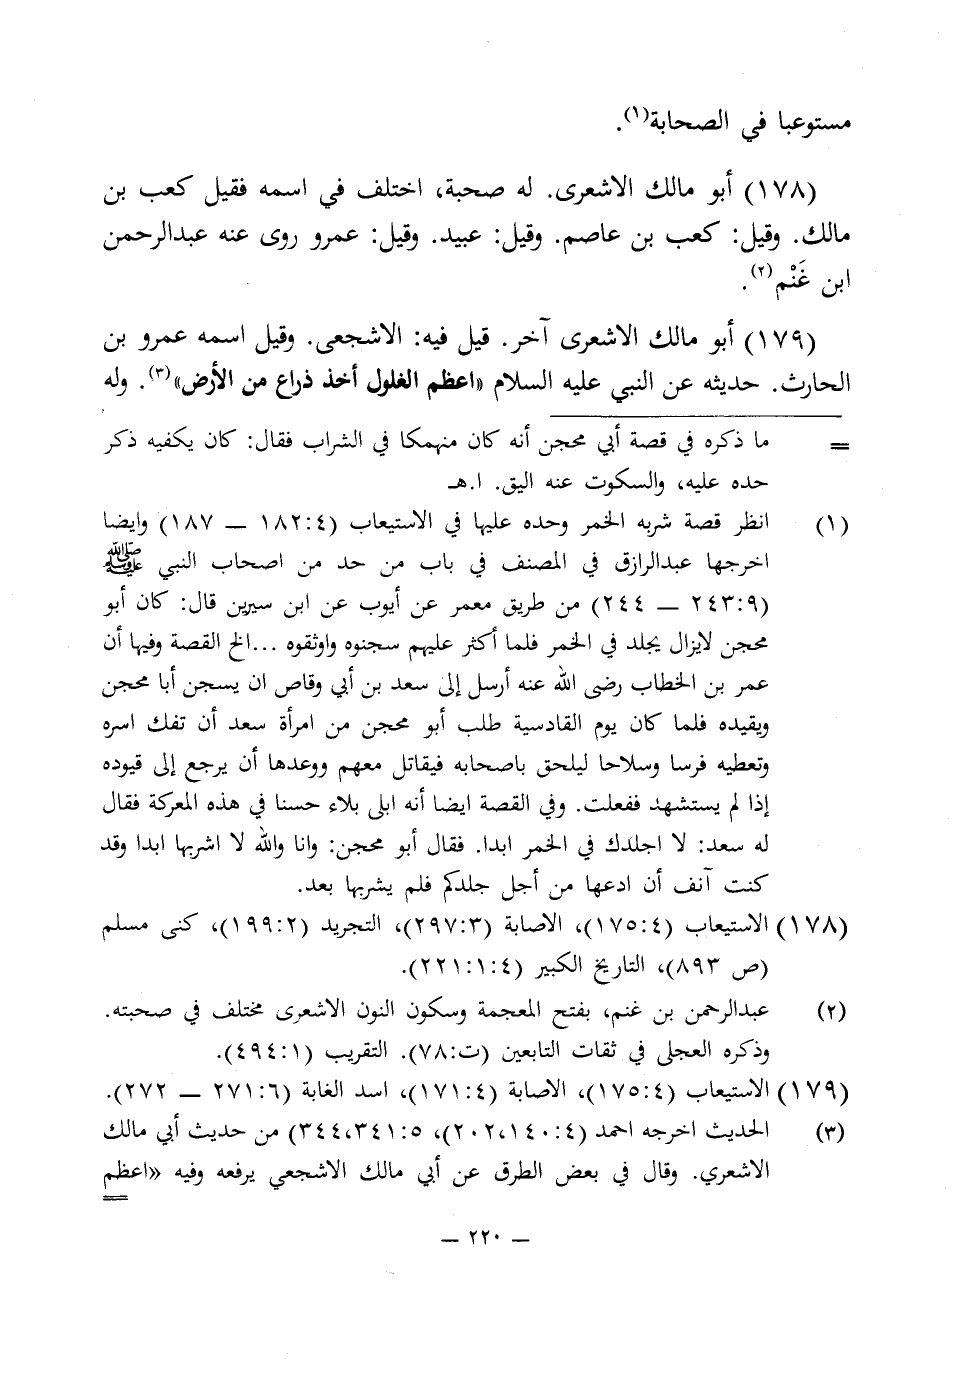 مستوعبا في الصحابة(١).
(١٧٨) أبو مالك الاشعرى. له صحبة، اختلف في اسمه فقيل كعب بن
مالك. وقيل: كعب بن عاصم. وقيل: عبيد. وقيل: عمرو روى عنه عبدالرحمن
ابن غَنْم(٢).
(١٧٩) أبو مالك الاشعرى آخر. قيل فيه: الاشجعى. وقيل اسمه عمرو بن
الحارث. حديثه عن النبي عليه السلام «اعظم الغلول أخذ ذراع من الأرض»(٣). وله
= ما ذكره في قصة أبي محجن أنه كان منهمكا في الشراب فقال: كان يكفيه ذكر
حده عليه، والسكوت عنه اليق. ا.هـ
(١) انظر قصة شربه الخمر وحده عليها في الاستيعاب (٤:١٨٢ — ١٨٧) وايضا
اخرجها عبدالرازق في المصنف في باب من حد من اصحاب النبي ﷺ
(٩:٢٤٣ — ٢٤٤) من طريق معمر عن أيوب عن ابن سيرين قال: كان أبو
محجن لايزال يجلد في الخمر فلما أكثر عليهم سجنوه واوثقوه ...الخ القصة وفيها أن
عمر بن الخطاب رضى الله عنه أرسل إلى سعد بن أبي وقاص ان يسجن أبا محجن
ويقيده فلما كان يوم القادسية طلب أبو محجن من امرأة سعد أن تفك اسره
وتعطيه فرسا وسلاحا ليلحق باصحابه فيقاتل معهم ووعدها أن يرجع إلى قيوده
إذا لم يستشهد ففعلت. وفي القصة ايضا أنه ابلى بلاء حسنا في هذه المعركة فقال
له سعد: لا اجلدك في الخمر ابدا. فقال أبو محجن: وانا والله لا اشربها ابدا وقد
كنت آنف أن ادعها من أجل جلدكم فلم يشربها بعد.
(١٧٨) الاستيعاب (٤:١٧٥)، الاصابة (٣:٢٩٧)، التجريد (٢:١٩٩)، كنى مسلم
(ص ٨٩٣)، التاريخ الكبير (٤:١:٢٢١).
(٢) عبدالرحمن بن غنم، بفتح المعجمة وسكون النون الاشعرى مختلف في صحبته.
وذكره العجلى في ثقات التابعين (ت:٧٨). التقريب (١:٤٩٤).
(١٧٩) الاستيعاب (٤:١٧٥)، الاصابة (٤:١٧١)، اسد الغابة (٦:٢٧١ — ٢٧٢).
(٣) الحديث اخرجه احمد (٤:١٤٠،٢٠٢)، ٥:٣٤١،٣٤٤) من حديث أبي مالك
الاشعري. وقال في بعض الطرق عن أبي مالك الاشجعي يرفعه وفيه «اعظم
=
— ٢٢٠ —